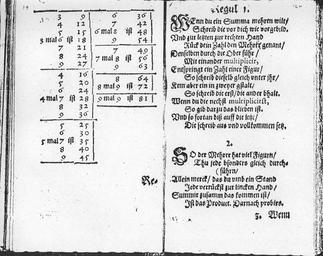 3 9
4 12
5 15
3 mal 6 ist 18
7 21
8 24
9 27
4 16
5 20
6 24
4 mal 7 ist 28
8 32
9 36
5 25
6 30
5 mal 7 ist 35
8 40
9 45
6 36
7 42
6 mal 8 ist 48
9 54
7 49
7 mal 8 ist 56
9 63
8 64
8 mal 9 ist 72
9 mal 9 ist 81
Re-
Regul 1.
WEnn du ein Summa mehren wilt/
Schreib die vor dich wie vorgebild.
Vnd zur lincken zur rechten Hand
Ruck dein Zahl den Mehrer genant/
Denselben durch die Ober führ/
Miteinander multiplicir,
Entspringt ein Zahl einer Figur/
So schreib dieselb gleich vnter ihr/
Kem aber ein in zweyer gstalt/
So schreib die erst/die ander bhalt.
Wenn du die nechst multiplicirst,
So gib darzu das blieben ist.
Vnd so fortan biß auff die letst/
Die schreib auß vnd vollkommen setz.
2.
SO der Mehrer hat viel Figuren/
Thu jede bsonders gleich durch-
(führen/
Allein merck/ das du vmb ein Stand
Jede verrückst zur lincken Hand/
Summir zusamm das kommen ist/
Ist das Product. Darnach probirs.
3. Wenn